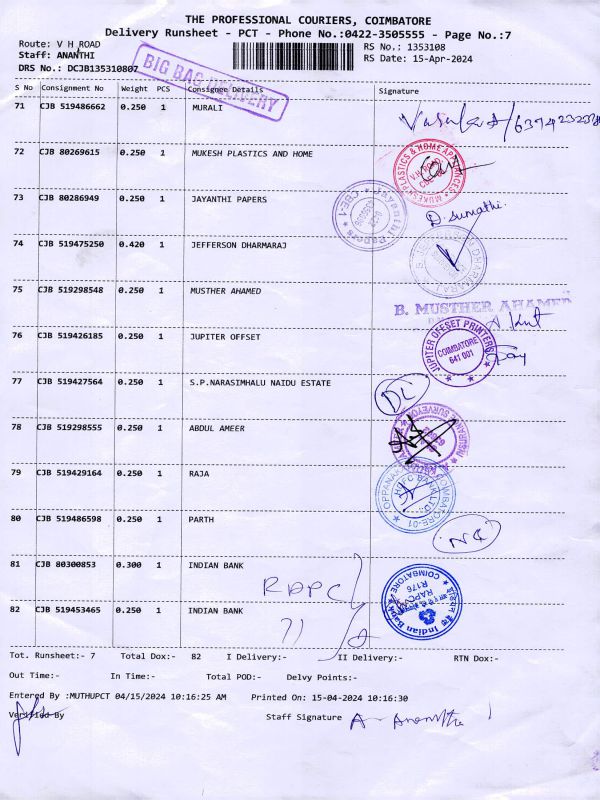 THE PROFESSIONAL COURIERS, COIMBATORE
Delivery Runsheet - PCT - Phone No.:0422-3505555 - Page No.:7
Route: V H ROAD
RS No.: 1353108
Staff: ANANTHI
RS Date: 15-Apr-2024
DRS No.: DCJB135310807
BIG BAG DELIVERY
S No Consignment No Weight PCS Consignee Details Signature
71 CJB 519486662 0.250 1 MURALI
72 CJB 80269615 0.250 1 MUKESH PLASTICS AND HOME
MUKESH PLASTICS & HOME APPLIANCES
V.H. ROAD
73 CJB 80286949 0.250 1 JAYANTHI PAPERS
Jayanthi Papers
CBE-1
D. Sumathi
74 CJB 519475250 0.420 1 JEFFERSON DHARMARAJ
75 CJB 519298548 0.250 1 MUSTHER AHAMED
B. MUSTHER AHAMED
76 CJB 519426185 0.250 1 JUPITER OFFSET
JUPITER OFFSET PRINTERS
COIMBATORE
641 001
77 CJB 519427564 0.250 1 S.P.NARASIMHALU NAIDU ESTATE
DL
78 CJB 519298555 0.250 1 ABDUL AMEER
79 CJB 519429164 0.250 1 RAJA
HDFC BANK LTD.
80 CJB 519486598 0.250 1 PARTH
81 CJB 80300853 0.300 1 INDIAN BANK
RAPC
COIMBATORE
RAPC
R176
Indian Bank
82 CJB 519453465 0.250 1 INDIAN BANK
Tot. Runsheet:- 7 Total Dox:- 82 I Delivery:- II Delivery:- RTN Dox:-
Out Time:- In Time:- Total POD:- Delvy Points:-
Entered By :MUTHUPCT 04/15/2024 10:16:25 AM Printed On: 15-04-2024 10:16:30
Verified By Staff Signature A. Ananthi